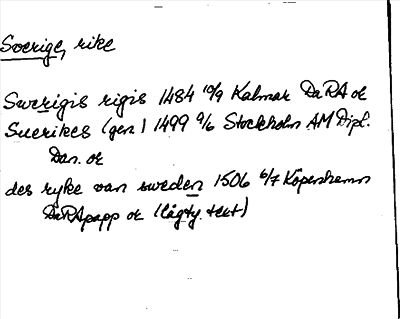 Sverige, rike
Swerigis rigis 1484 10/9 Kalmar DaRA or
Suerikes (gen.) 1499 9/6 Stockholm AM Dipl.
Dan. or
des ryke van sweden 1506 6/7 Köpenhamn
DaRApapp or (lågty. text)